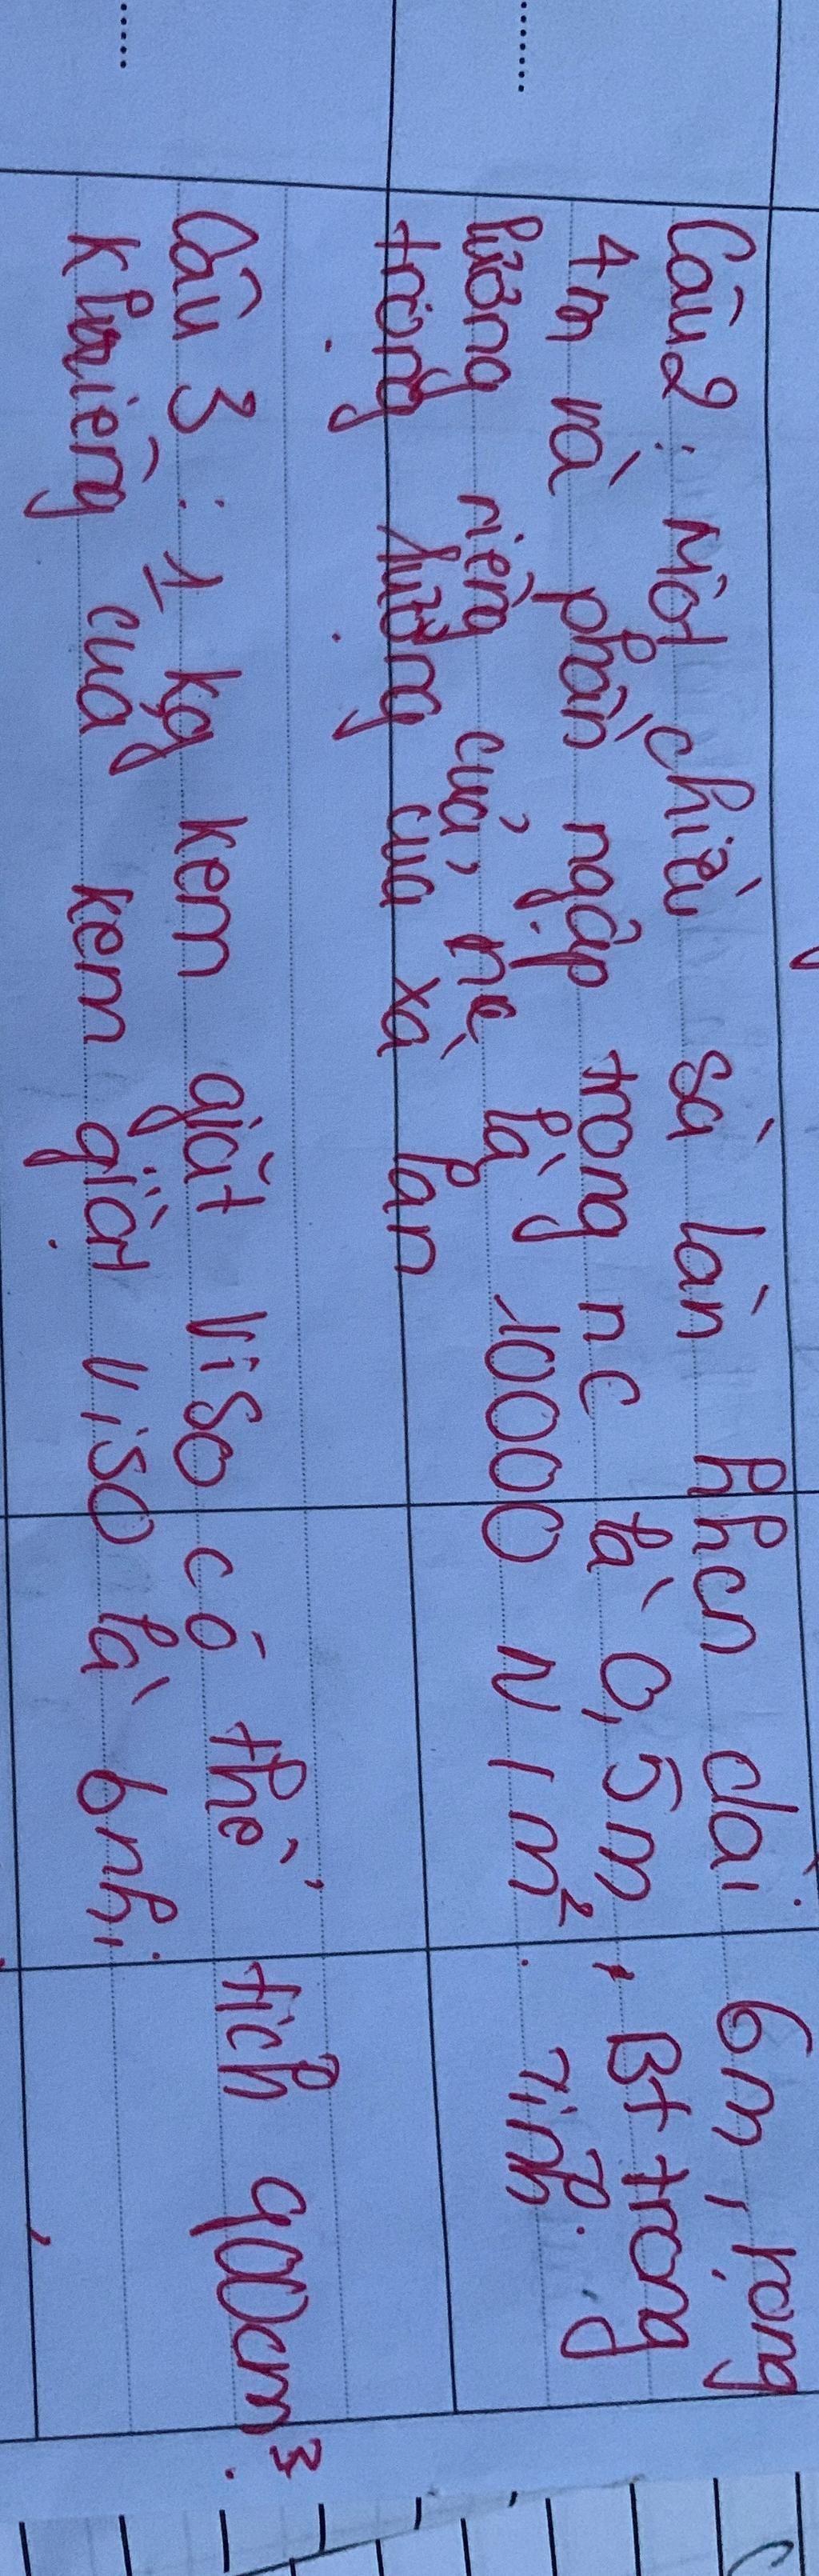 Câu 2: Một chiều sà làn hhcn dài 6m, rộng
4m và phần ngập trong nc là 0,5m. Bt trọng
lượng riêng của, nc là 10000 N/m². Tính
trọng lượng của xà lan
Câu 3: 1 kg kem giặt Viso có thể tích 900cm³.
Khlriêng của kem giặt Viso là bnh,